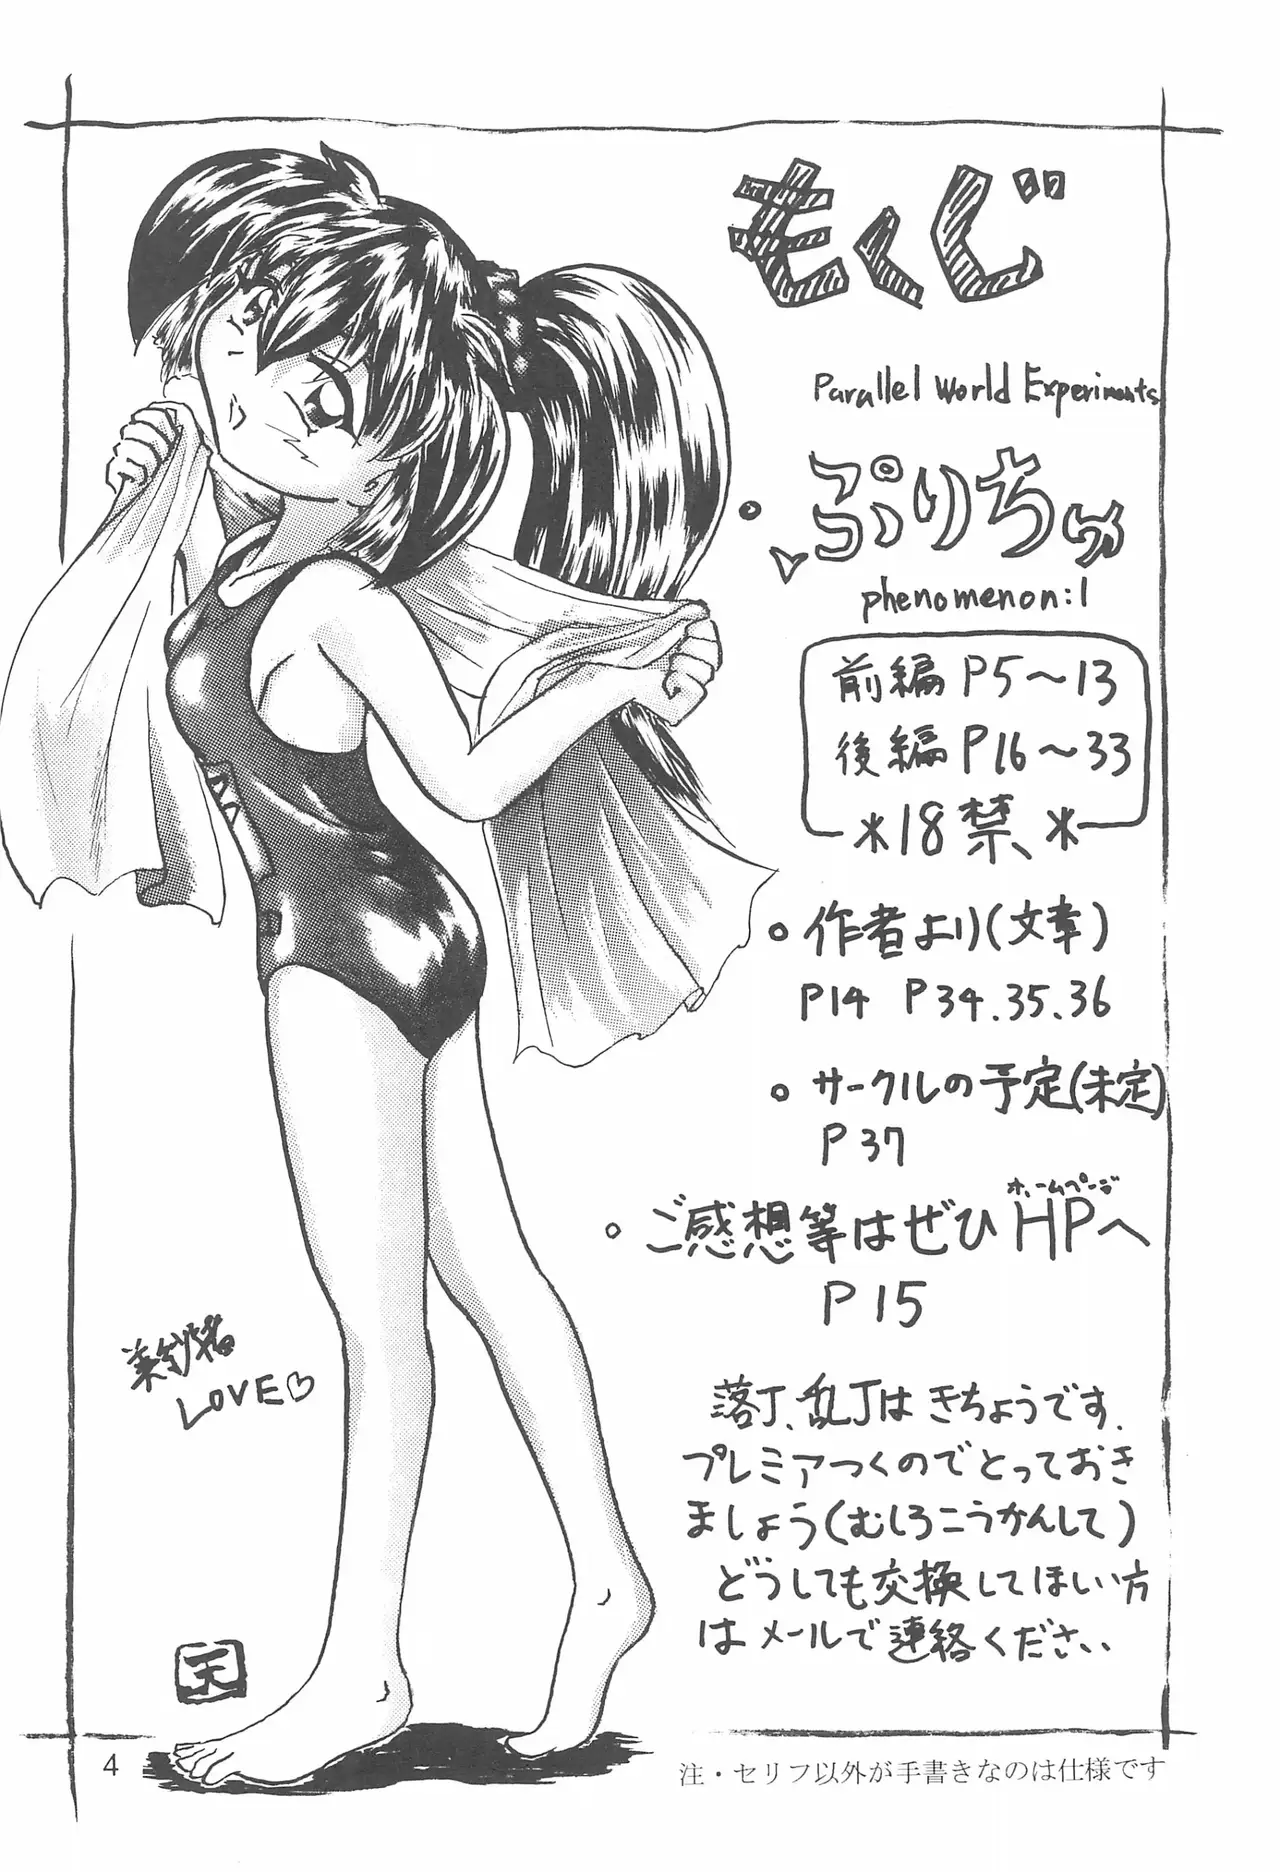 もくじ
Parallel World Experiments
・ぷりちゅ
phenomenon:1
前編 P5〜13
後編 P16〜33
＊18禁＊
○作者より(文章)
P14 P34.35.36
○サークルの予定(未定)
P37
ホームページ
○ご感想等はぜひHPへ
P15
LOVE♡
落丁、乱丁はきちょうです.
プレミアつくのでとっておき
ましょう(むしろこうかんして)
どうしても交換してほしい方
はメールで連絡ください
天
4
注・セリフ以外が手書きなのは仕様です